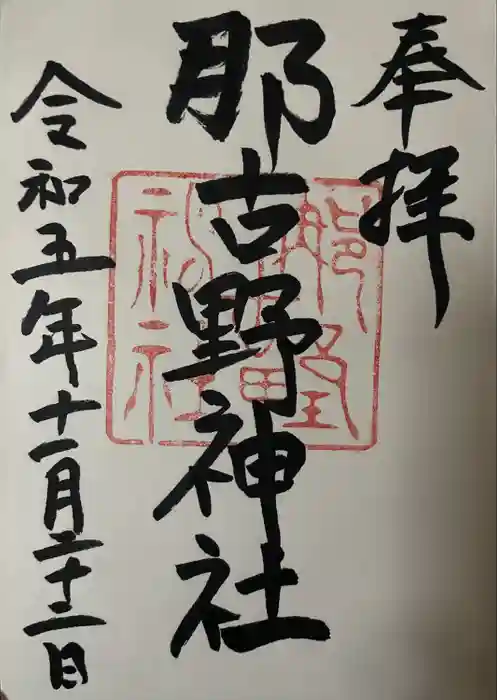 奉拝
那古野神社
令和五年十一月二十三日